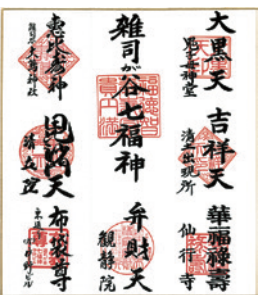 大黒天
鬼子母神堂
吉祥天
清土出現所
華福禄壽
仙行寺
雑司が谷七福神
弁財天
観静院
恵比寿神
大鳥神社
毘沙門天
清立院
布袋尊